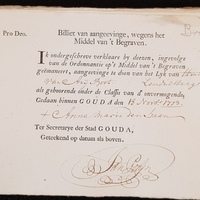 Pro Deo.
Billet van aangeevinge, wegens het
Middel van 't Begraven.
IK ondergeschreve verklaare by deezen, ingevolge
van de Ordonnantie op 't Middel van 't Begraven
geëmaneert, aangeevinge te doen van het Lyk van
als gehoorende onder de Classis van d' onvermogende,
Gedaan binnen GOUDA den 15 Novb. 1773.
Anna Maria
Ter Secretarye der Stad GOUDA,
Geteekend op datum als boven.